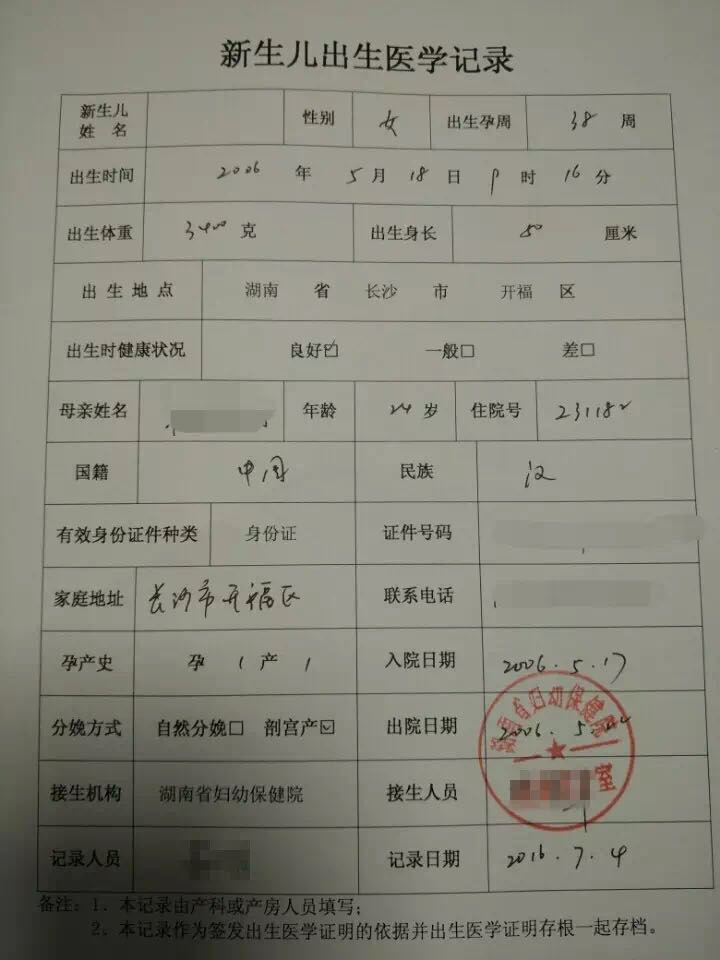 新生儿出生医学记录
新生儿姓名 性别 女 出生孕周 38 周
出生时间 2006 年 5 月 18 日 9 时 16 分
出生体重 3400 克 出生身长 50 厘米
出生地点 湖南 省 长沙 市 开福 区
出生时健康状况 良好☑ 一般□ 差□
母亲姓名 年龄 24 岁 住院号 231182
国籍 中国 民族 汉
有效身份证件种类 身份证 证件号码
家庭地址 长沙市开福区 联系电话
孕产史 孕 1 产 1 入院日期 2006.5.17
分娩方式 自然分娩□ 剖宫产☑ 出院日期 2006.5.
接生机构 湖南省妇幼保健院 接生人员
湖南省妇幼保健院
记录人员 记录日期 2016.7.4
备注：1、本记录由产科或产房人员填写；
2、本记录作为签发出生医学证明的依据并出生医学证明存根一起存档。